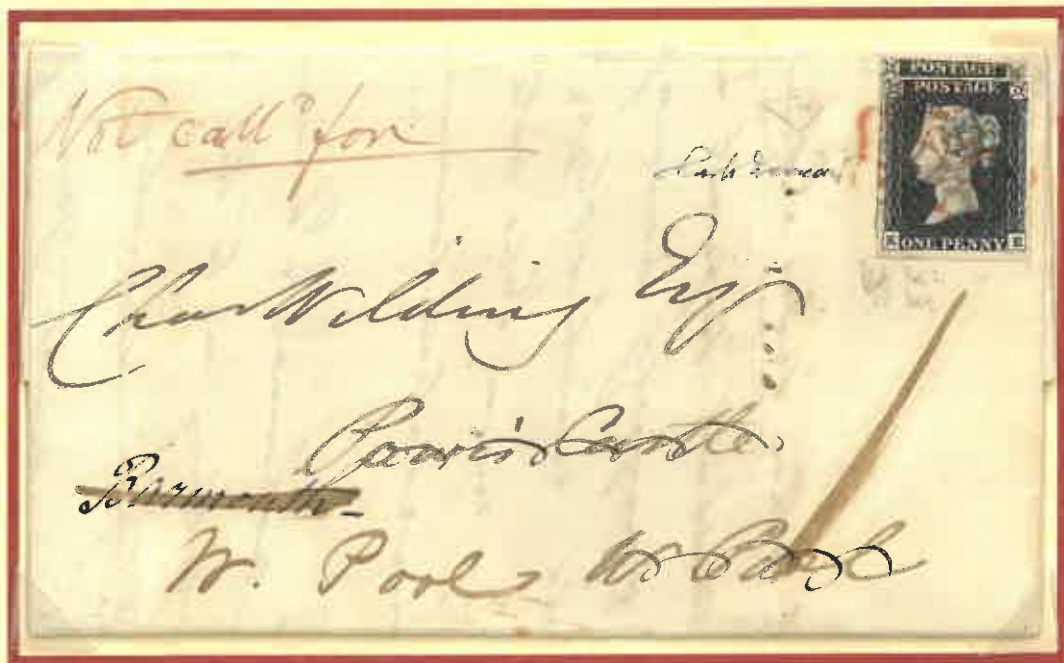 Not call'd for
POSTAGE
POSTAGE
ONE PENNY
Chas Wilding Esq
Powis Castle
Barmouth
W. Pool W Pool